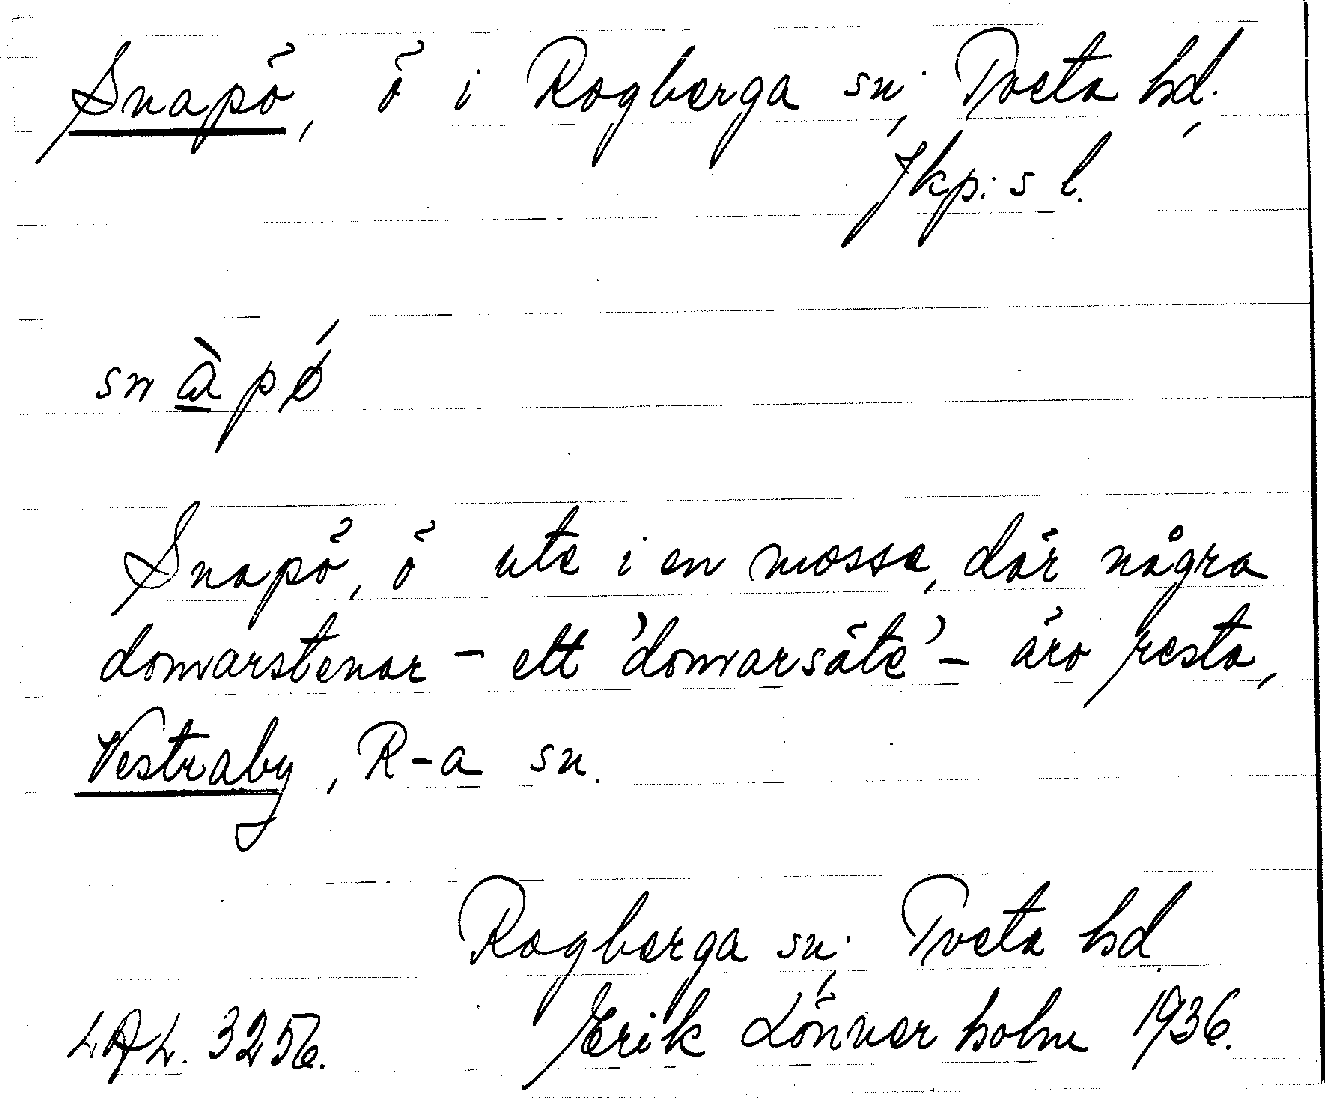 Snapö, ö i Rogberga sn, Tveta hd,
Jkp:s l.
snàpǿ
Snapö, ö ute i en mosse, där några
domarstenar – ett 'domarsäte' – äro resta,
Vestraby, R-a sn.
Rogberga sn, Tveta hd
LAL. 3256. Erik Lönnerholm 1936.